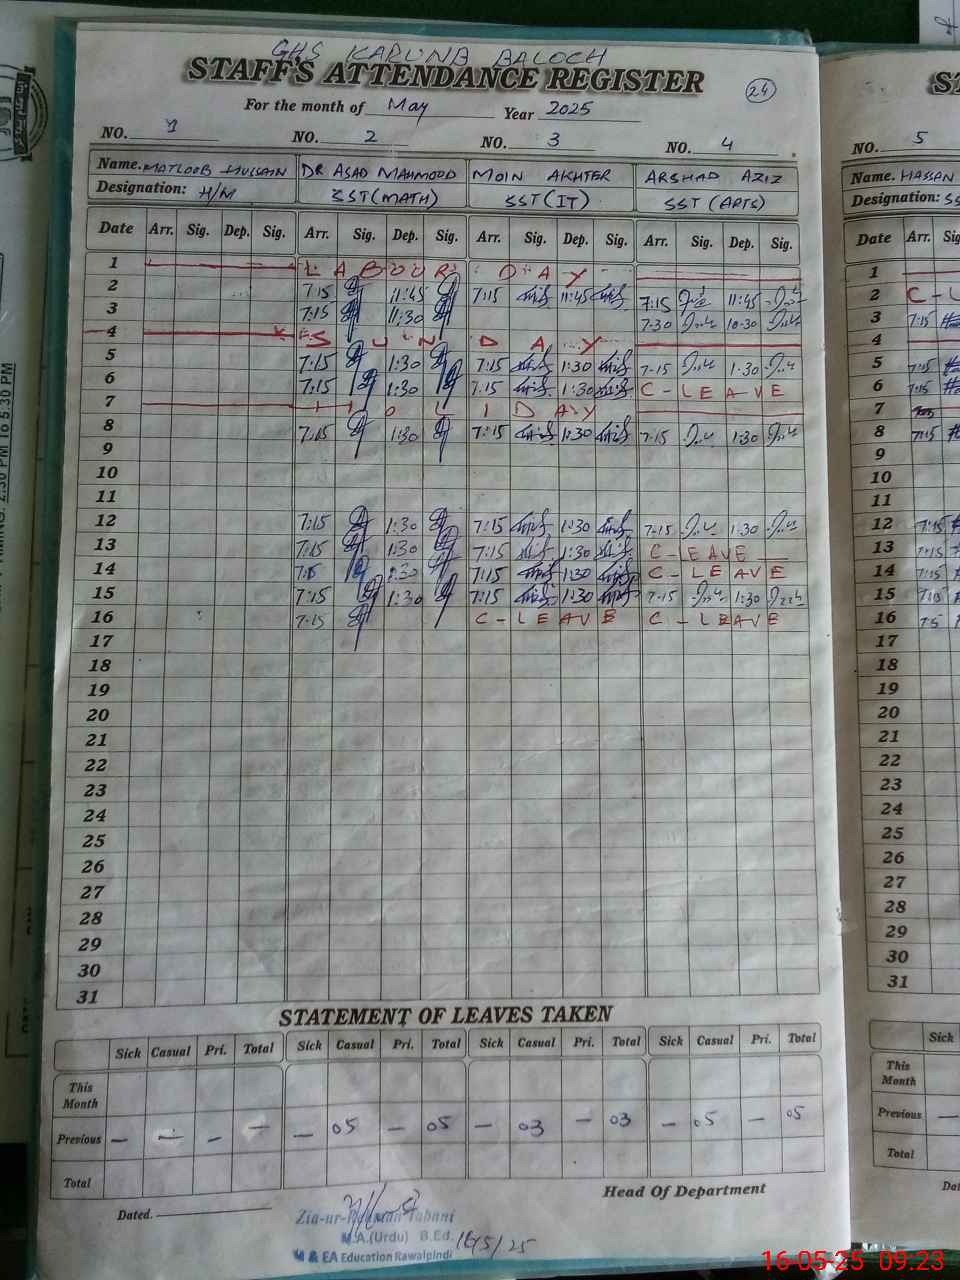 GHS KARUNA BALOCH
STAFF'S ATTENDANCE REGISTER
24
For the month of May Year 2025
NO. 1 NO. 2 NO. 3 NO. 4
Name. MATLOOB HUSSAIN DR ASAD MAHMOOD MOIN AKHTER ARSHAD AZIZ
Designation: H/M SST(MATH) SST(IT) SST (ARTS)
Date Arr. Sig. Dep. Sig. Arr. Sig. Dep. Sig. Arr. Sig. Dep. Sig. Arr. Sig. Dep. Sig.
1 LABOUR DAY
2 7:15 11:45 7:15 11:45 7:15 11:45
3 7:15 11:30 7-30 10-30
4 SUNDAY
5 7:15 1:30 7:15 1:30 7-15 1-30
6 7:15 1:30 7:15 1:30 C-LEAVE
7 HOLIDAY
8 7:15 1:30 7:15 1:30 7-15 1:30
9
10
11
12 7:15 1:30 7:15 1:30 7-15 1-30
13 7:15 1:30 7:15 1:30 C-LEAVE
14 7:15 1:30 7:15 1:30 C-LEAVE
15 7:15 1:30 7:15 1:30 7-15 1:30
16 7:15 C-LEAVE C-LEAVE
17
18
19
20
21
22
23
24
25
26
27
28
29
30
31
STATEMENT OF LEAVES TAKEN
Sick Casual Pri. Total Sick Casual Pri. Total Sick Casual Pri. Total Sick Casual Pri. Total
This Month
Previous — — — — — 05 — 05 — 03 — 03 — 05 — 05
Total
Head Of Department
Dated.
Zia-ur-Rehman Tabani
M.A.(Urdu) B.Ed.
M & EA Education Rawalpindi
16/5/25
NO. 5
Name. HASSAN
Designation: SS
Date Arr. Sig
1
2 C-L
3 7:15
4
5 7:15
6 7:15
7
8 7:15
9
10
11
12 7:15
13 7:15
14 7:15
15 7:15
16
17
18
19
20
21
22
23
24
25
26
27
28
29
30
31
Sick
This Month
Previous —
Total
TIMING: 2:30 PM To 5:30 PM
16-05-25 09:23